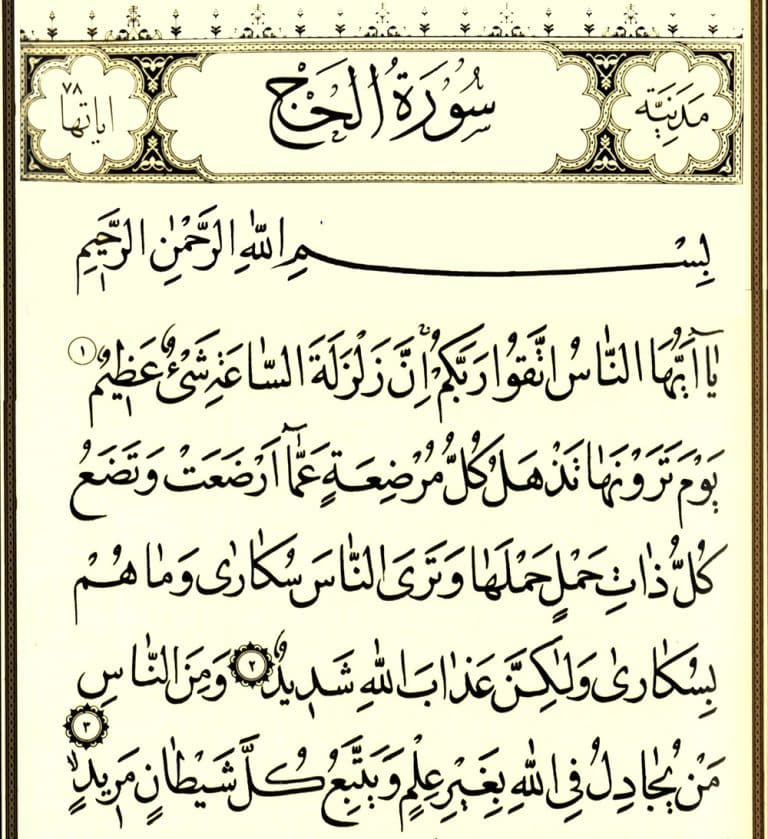 مَدَنِيَّة
سُورَةُ الْحَجِّ
اٰيَاتُهَا ٧٨
بِسْمِ اللّٰهِ الرَّحْمٰنِ الرَّحِيمِ
يَٓا اَيُّهَا النَّاسُ اتَّقُوا رَبَّكُمْ اِنَّ زَلْزَلَةَ السَّاعَةِ شَیْءٌ عَظِيمٌ ١
يَوْمَ تَرَوْنَهَا تَذْهَلُ كُلُّ مُرْضِعَةٍ عَمَّٓا اَرْضَعَتْ وَتَضَعُ
كُلُّ ذَاتِ حَمْلٍ حَمْلَهَا وَتَرَى النَّاسَ سُكَارٰى وَمَا هُمْ
بِسُكَارٰى وَلٰكِنَّ عَذَابَ اللّٰهِ شَدِيدٌ ٢ وَمِنَ النَّاسِ
مَنْ يُجَادِلُ فِى اللّٰهِ بِغَيْرِ عِلْمٍ وَيَتَّبِعُ كُلَّ شَيْطَانٍ مَرِيدٍ ٣